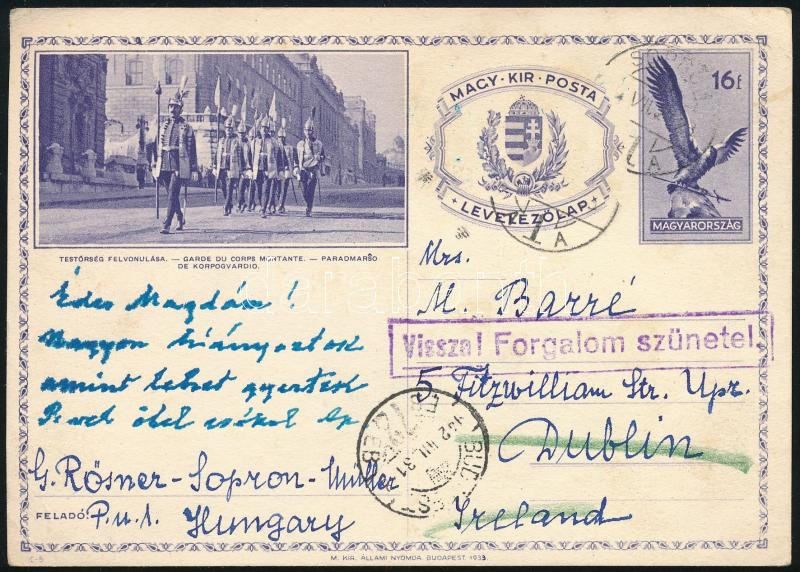 MAGY · KIR · POSTA
LEVELEZŐLAP
16f
MAGYARORSZÁG
TESTŐRSÉG FELVONULÁSA. — GARDE DU CORPS MONTANTE. — PARADMARŜO
DE KORPOGVARDIO.
Édes Magdám!
Nagyon hiányoztok
amint lehet gyertek
Mrs.
M. Barré
Vissza! Forgalom szünetel.
5 Fitzwilliam Str. Upr.
Dublin
Ireland
G. Rösner-Sopron-Muller
FELADÓ: P.u.1.
Hungary
C-5
M. KIR. ÁLLAMI NYOMDA. BUDAPEST. 1933.